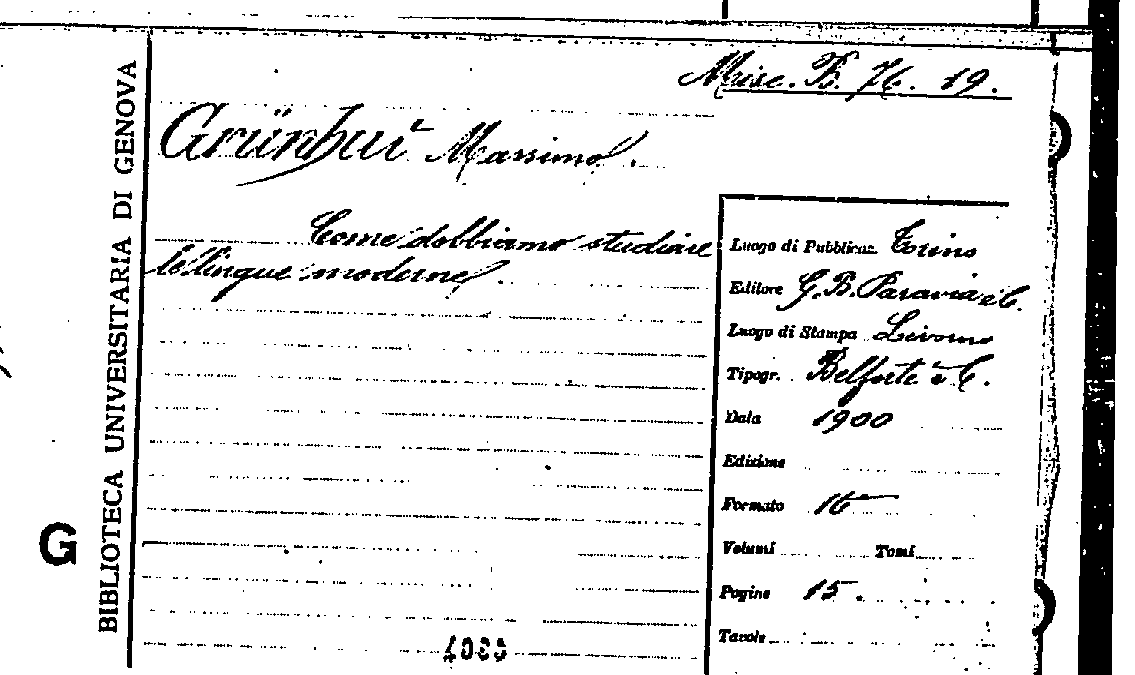 Misc. B. 76. 19.
Grünhut Massimo.
Come dobbiamo studiare
le lingue moderne.
Luogo di Pubblicaz. Torino
Editore G. B. Paravia e C.
Luogo di Stampa Livorno
Tipogr. Belforte e C.
Data 1900
Edizione
Formato 16
Volumi Tomi
Pagine 15.
Tavole
BIBLIOTECA UNIVERSITARIA DI GENOVA
G